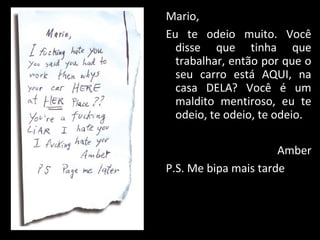 Mario,
I fucking hate you
you said you had to
work then whys
your car HERE
at HER Place??
You're a fucking
LiAR I hate you
I fucking hate you
Amber
PS Page me later
Mario,
Eu te odeio muito. Você
disse que tinha que
trabalhar, então por que o
seu carro está AQUI, na
casa DELA? Você é um
maldito mentiroso, eu te
odeio, te odeio, te odeio.
Amber
P.S. Me bipa mais tarde